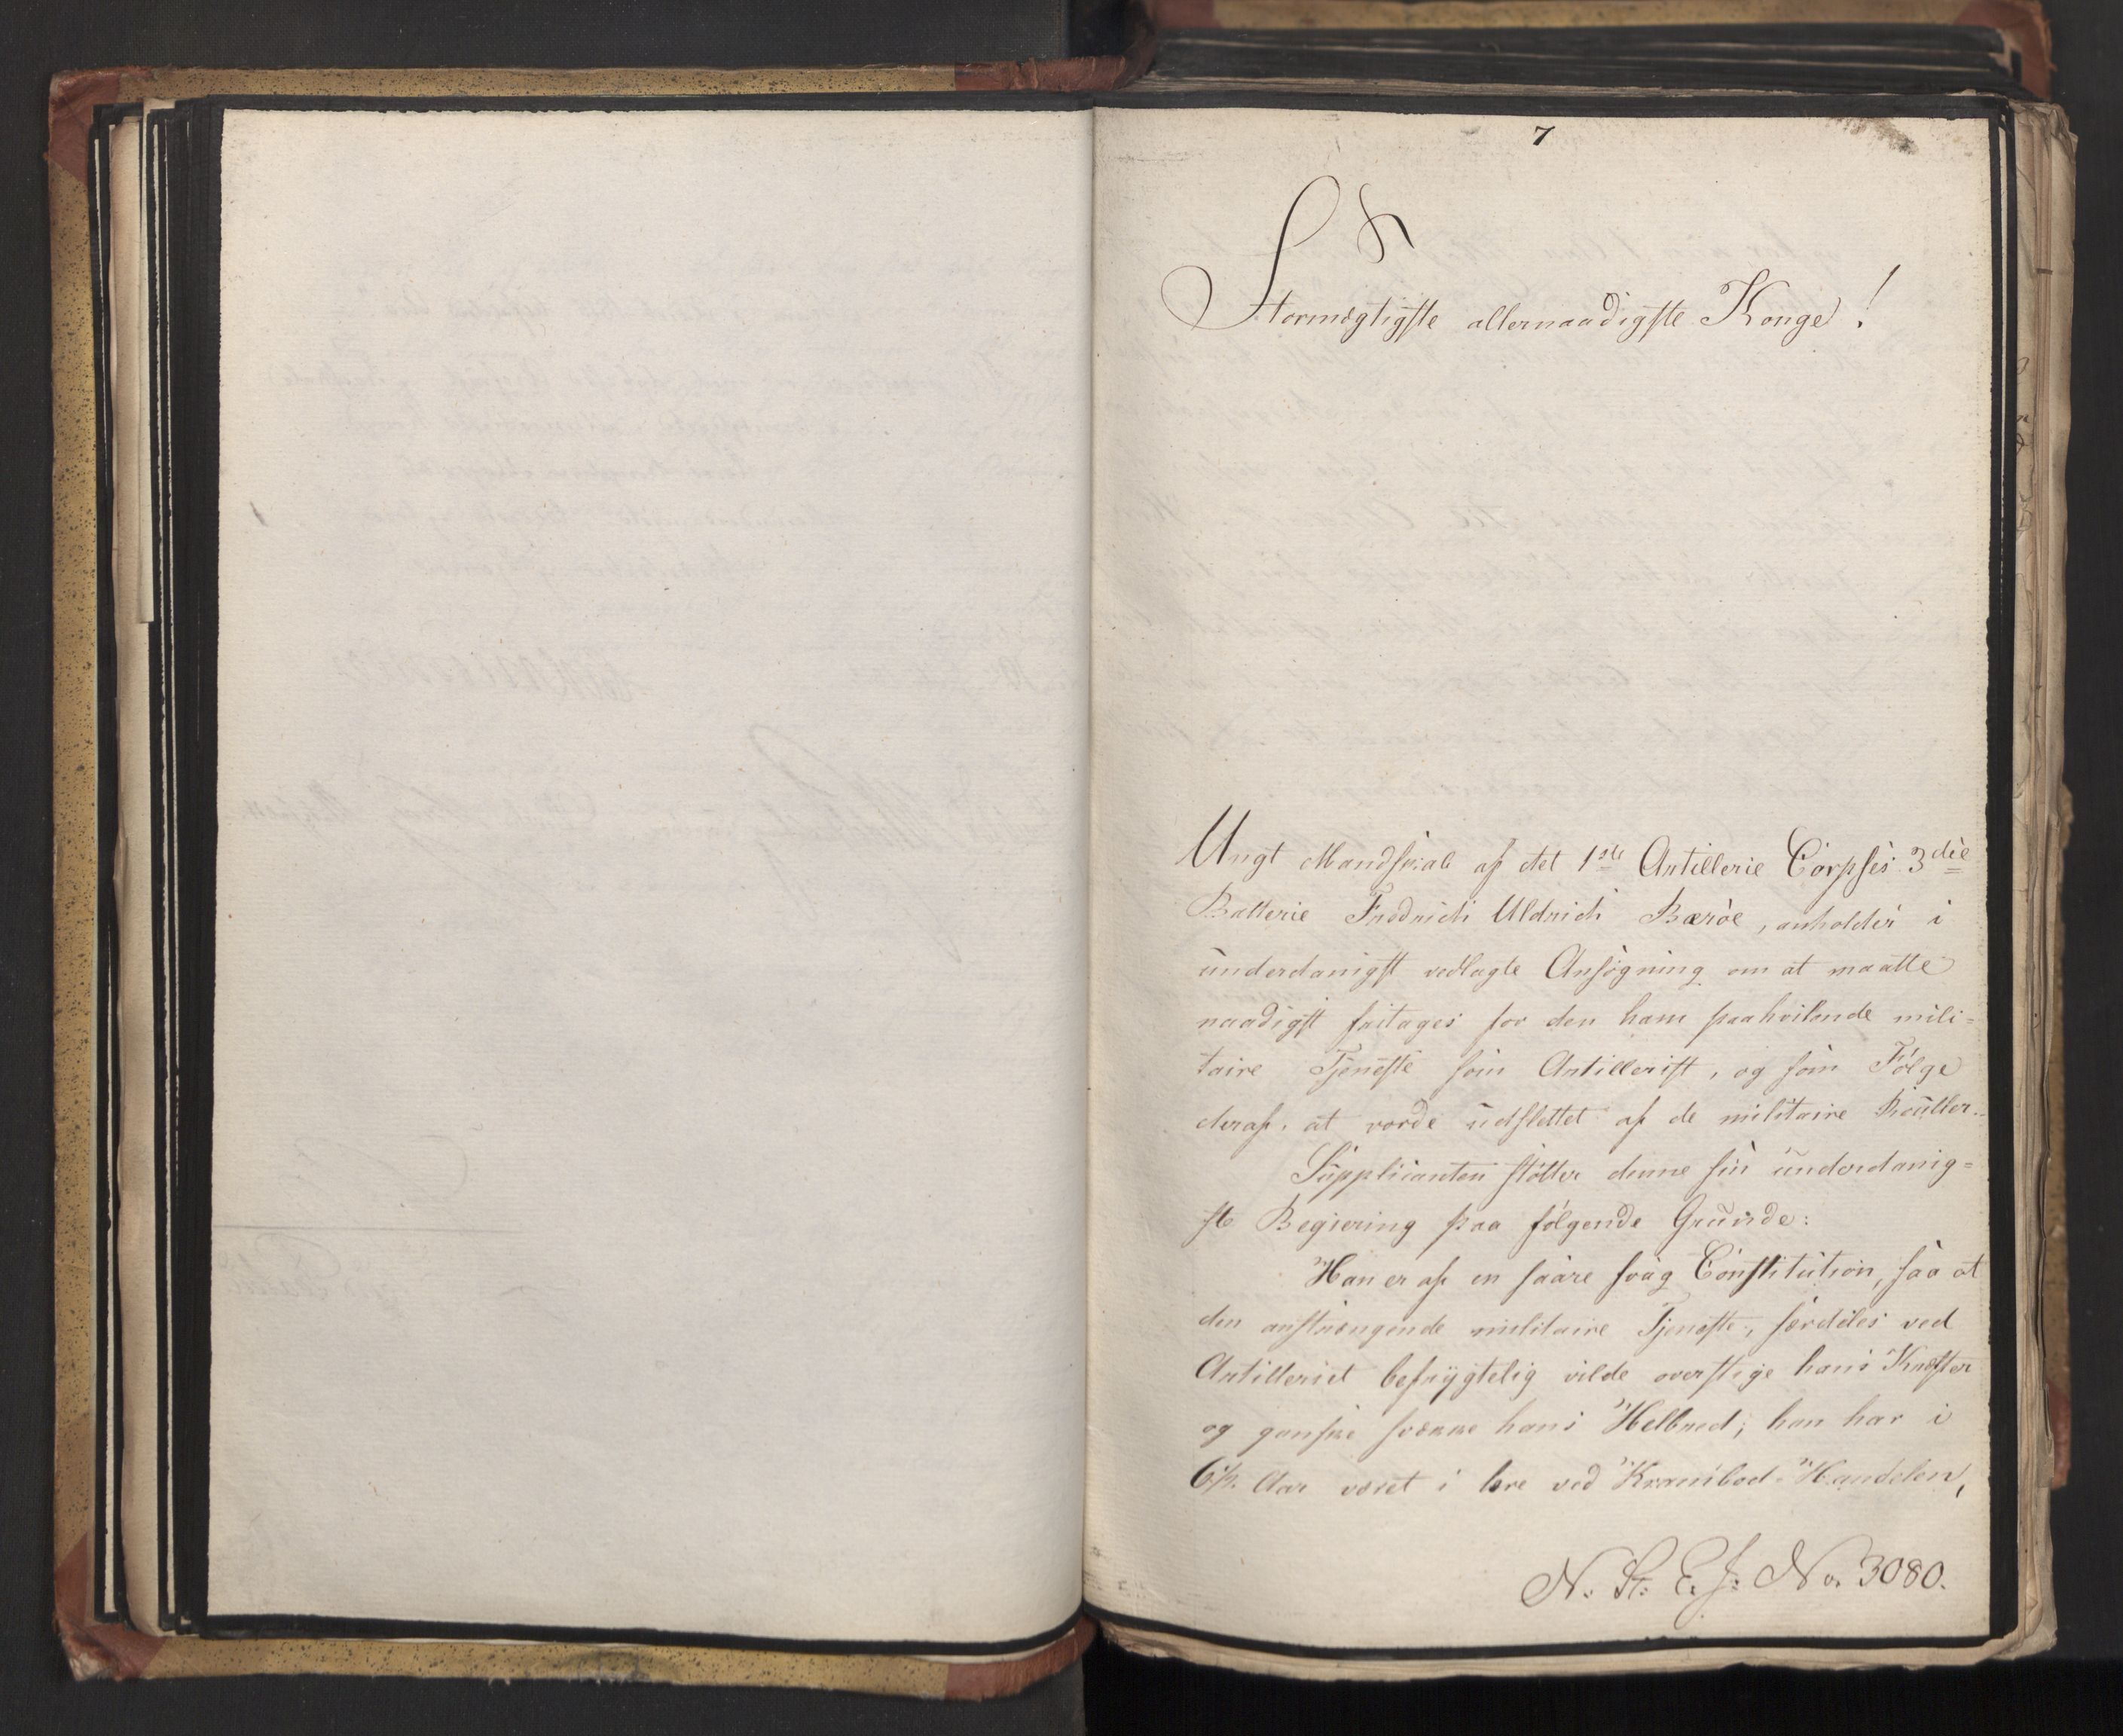 7
Stormægtigste allernaadigste Konge!
Ungt Mandskab af det 1ste Artillerie Corpses 3die
Batterie Fredrich Uldrich Bærøe, anholder i
underdanigst vedlagte Ansøgning om at maatte
naadigst fritages for den ham paahvilende mili=
taire Tjeneste som Artillerist, og som Følge
deraf, at vorde udslettet af de militaire Ruller.
Supplicanten støtter denne sin underdanig=
ste Begjering paa følgende Grunde:
Han er af en saare svag Constitution, saa at
den anstrængende militaire Tjeneste, særdeles ved
Artilleriet befrygtelig vilde overstige hans Kræfter
og ganske svække hans Helbred; han har i
6½ Aar været i lære ved Krambod-Handelen,
N. St. E. J: No. 3080.